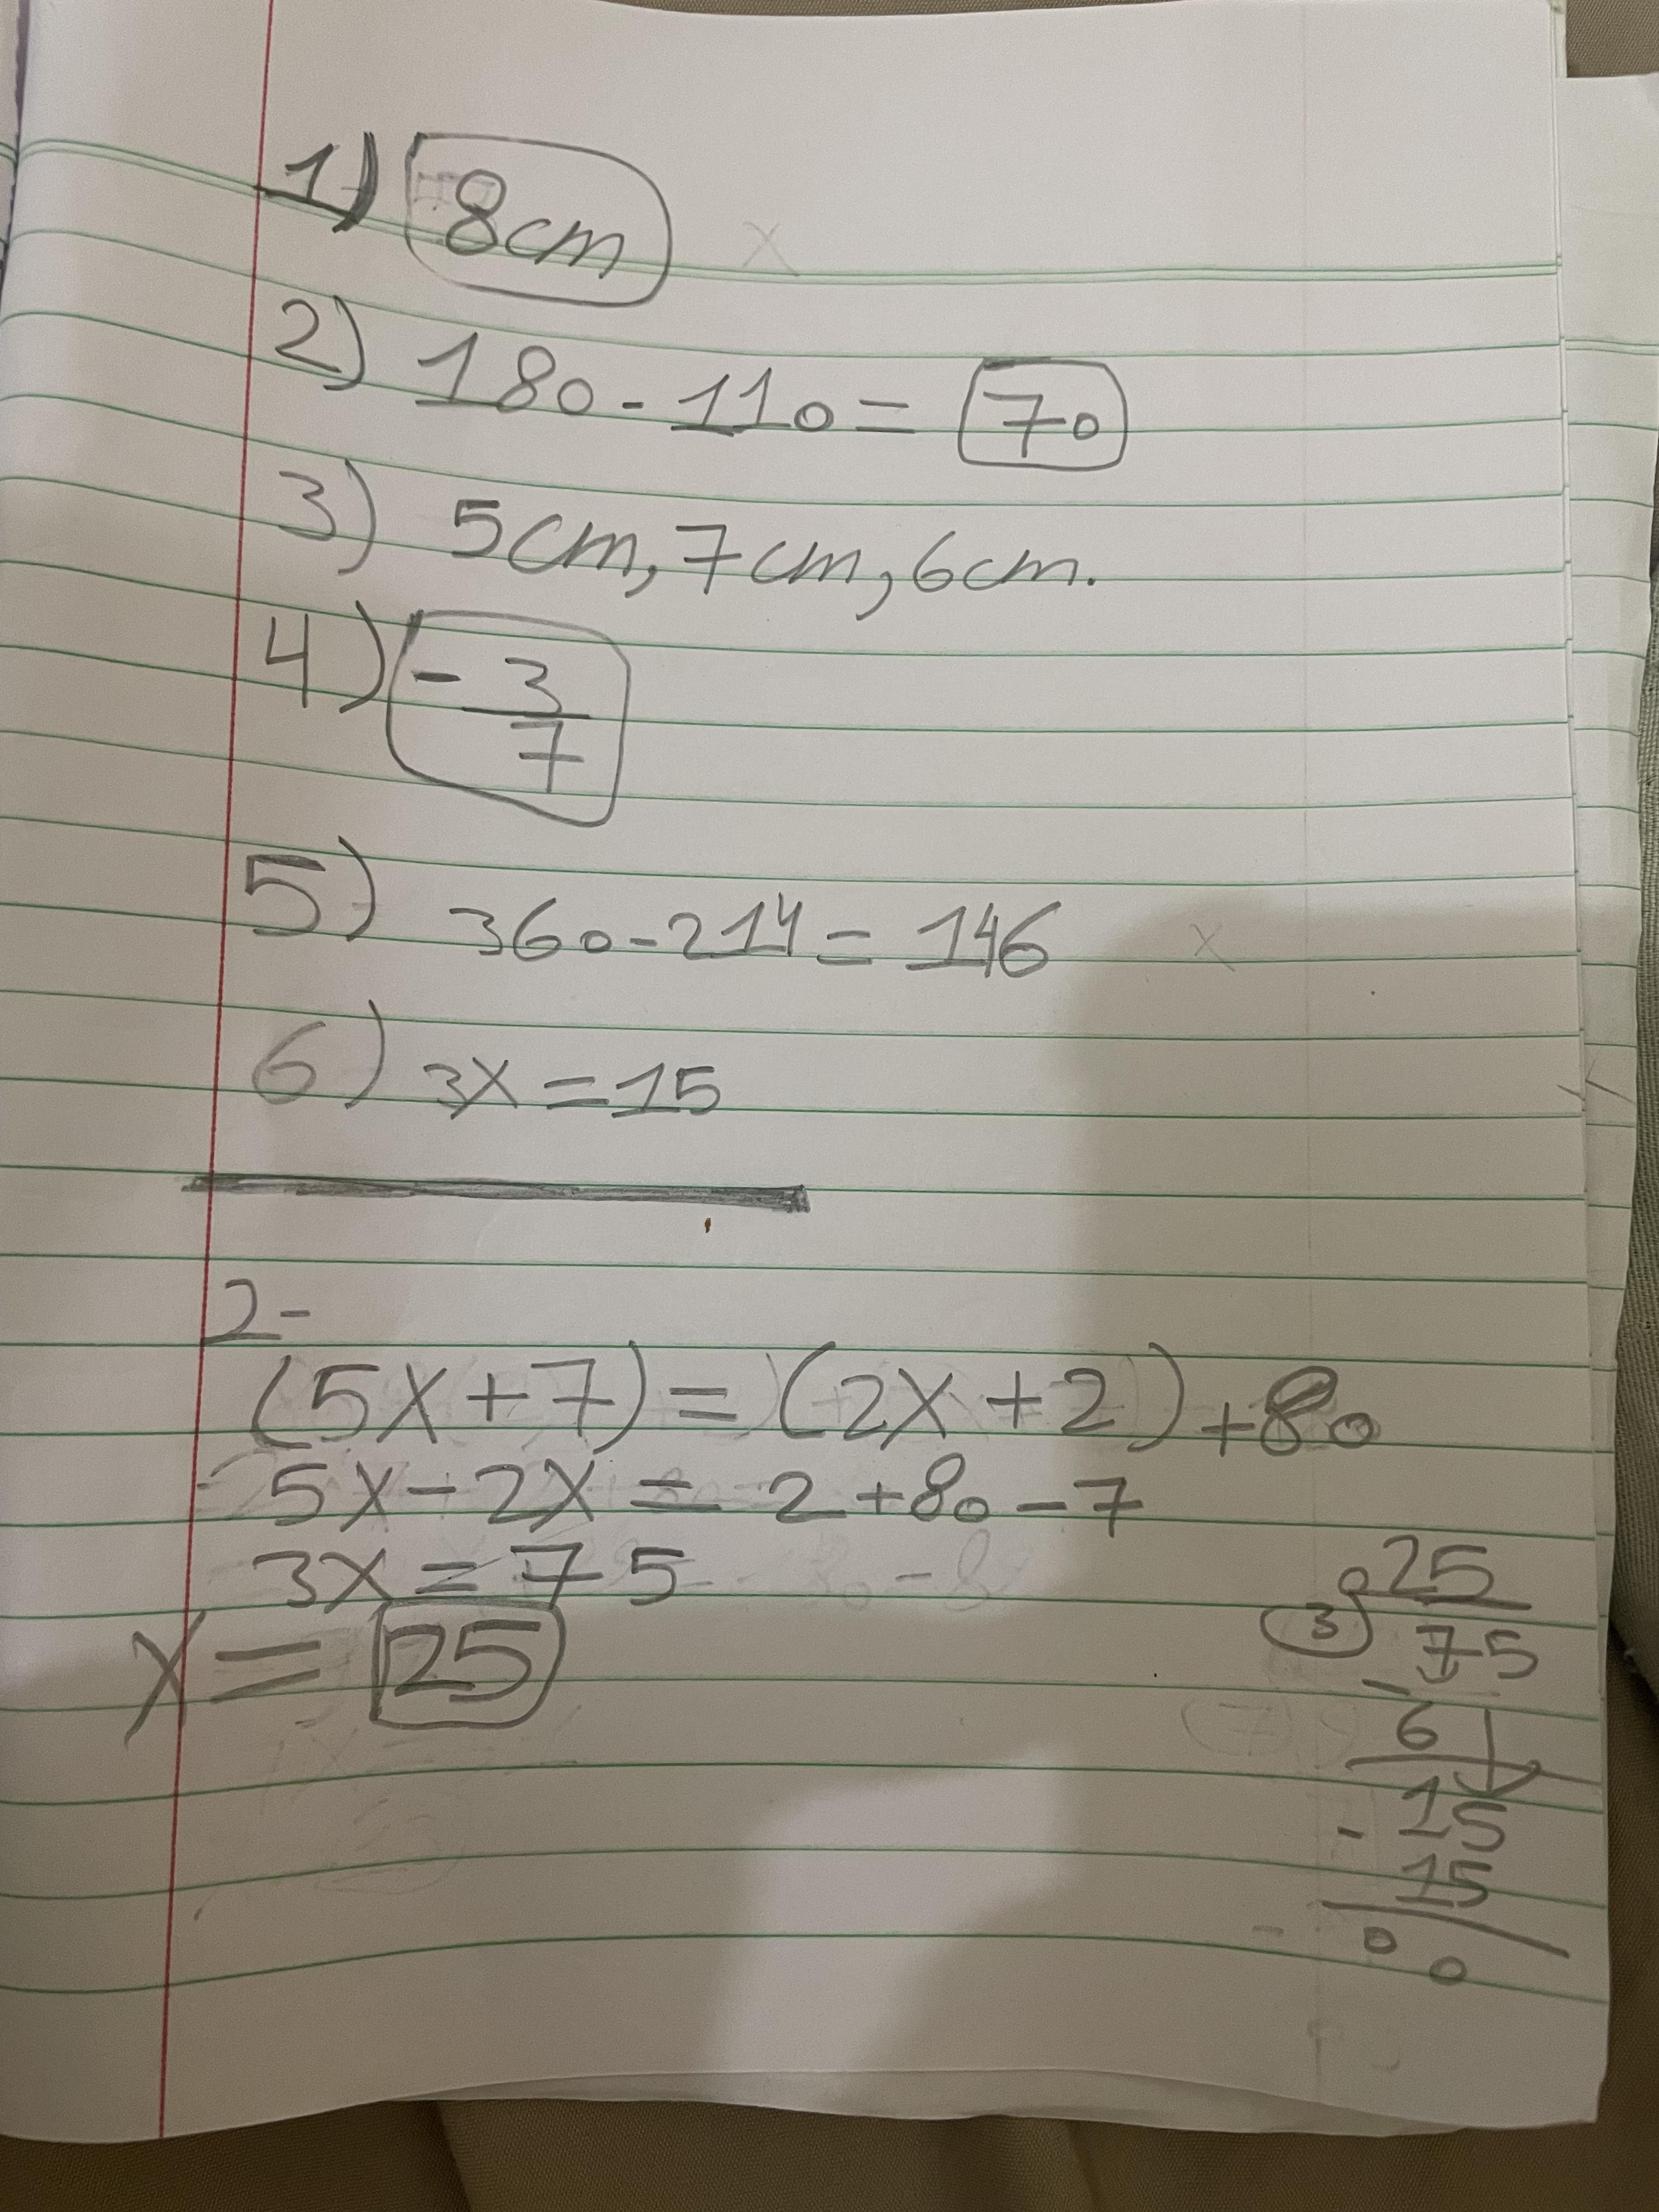 1) 8cm x
2) 180 - 110 = 70
3) 5cm, 7cm, 6cm.
4) - 3/7
5) 360 - 214 = 146 x
6) 3x = 15
2-
(5x + 7) = (2x + 2) + 80
5x - 2x = 2 + 80 - 7
3x = 75
x = 25
25
3 75
- 6
- 15
15
0 0